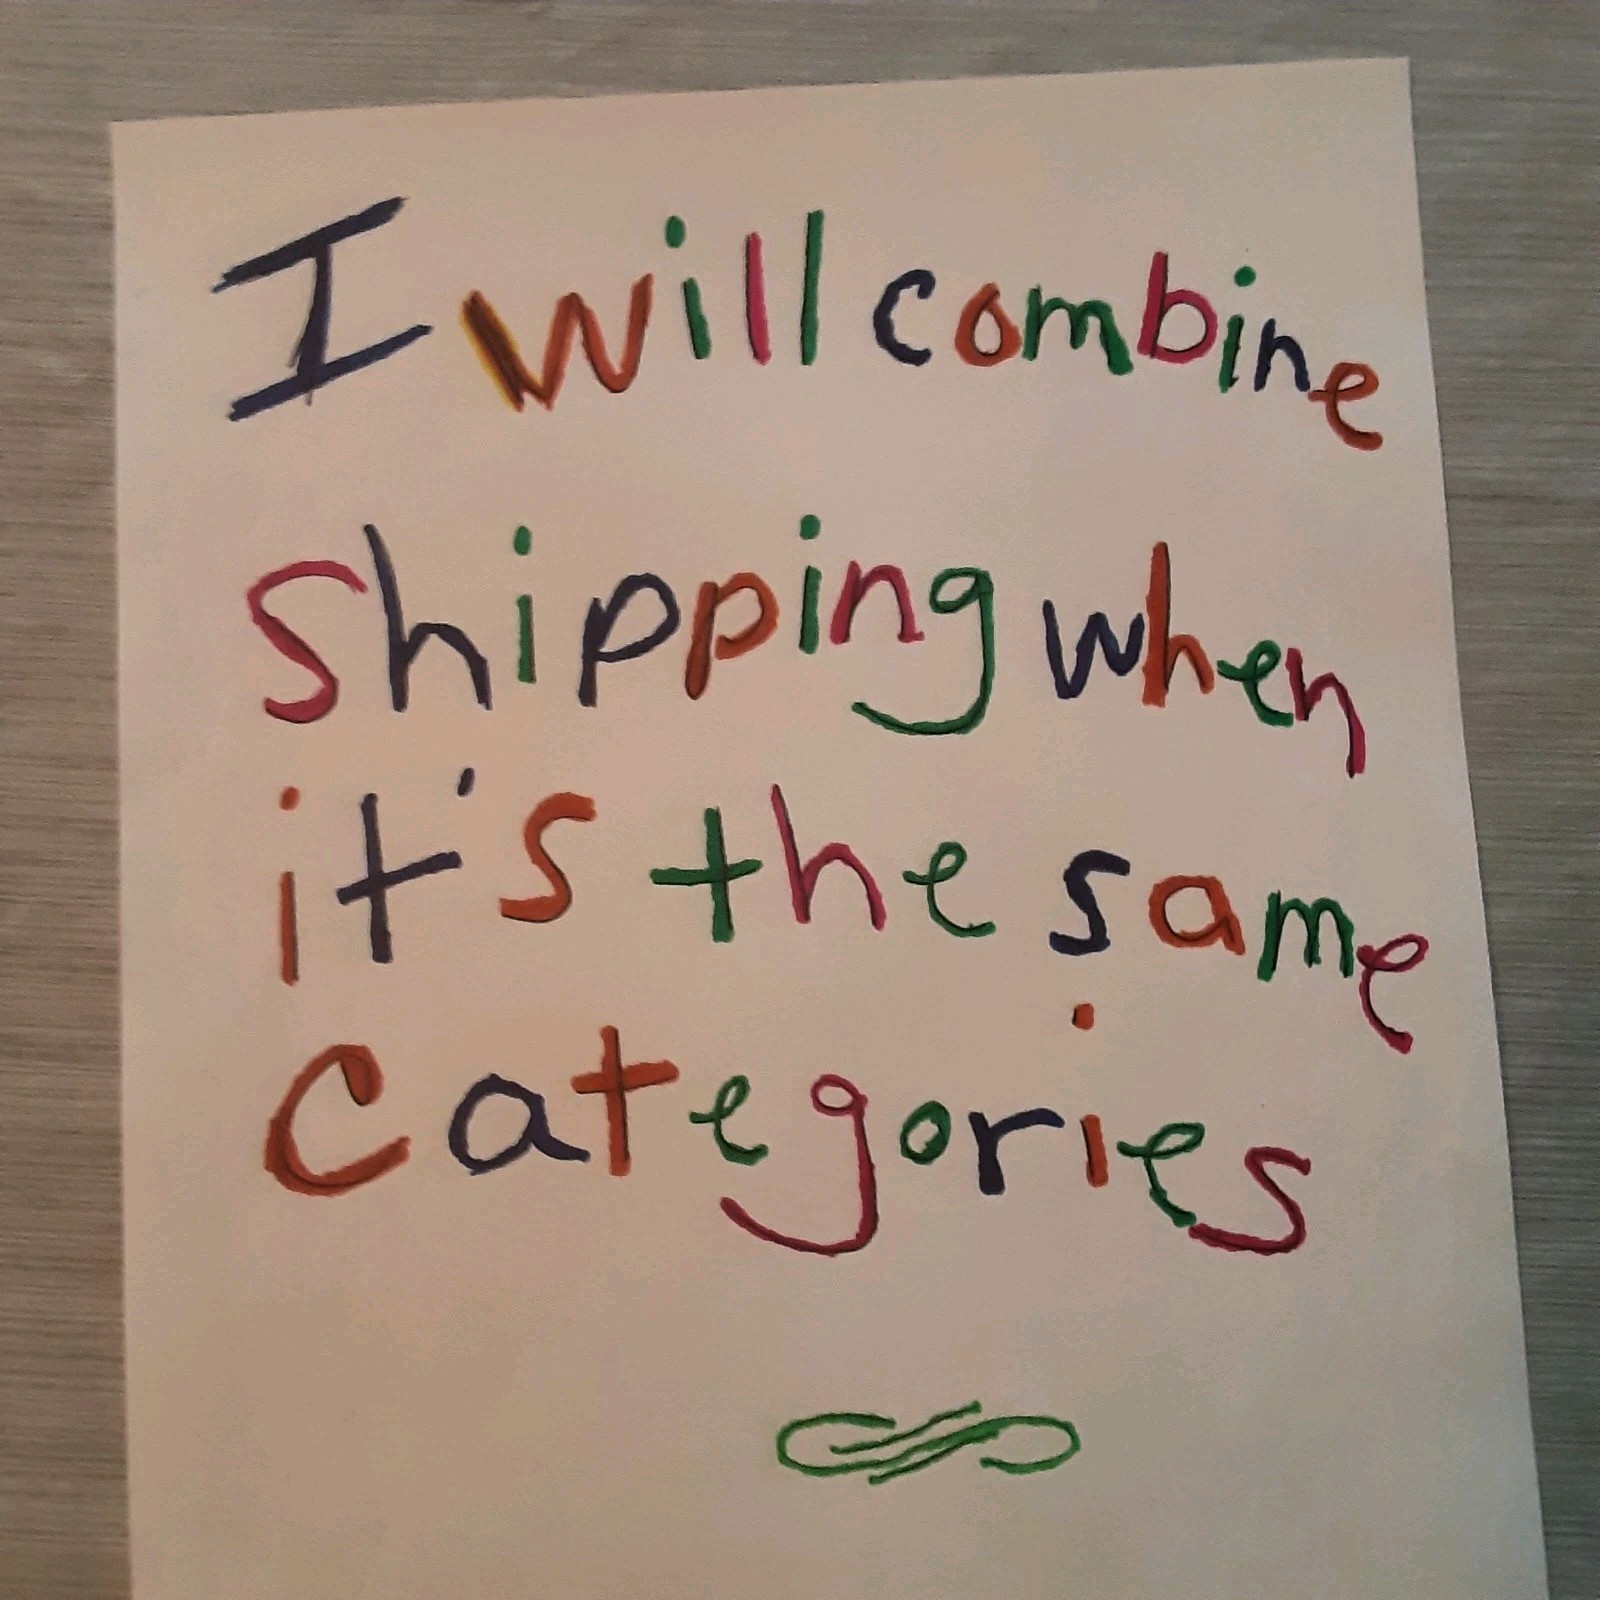 I will combine
Shipping when
it's the same
Categories